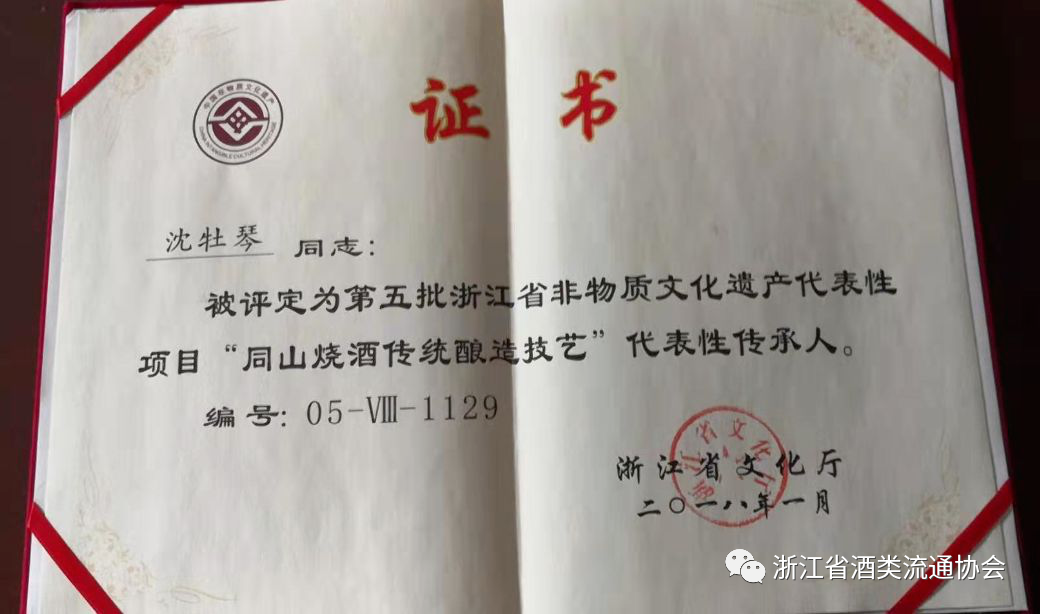 中国非物质文化遗产
CHINA INTANGIBLE CULTURAL HERITAGE
证书
沈牡琴 同志：
被评定为第五批浙江省非物质文化遗产代表性
项目“同山烧酒传统酿造技艺”代表性传承人。
编号: 05-Ⅷ-1129
浙江省文化厅
浙江省文化厅
二〇一八年一月
浙江省酒类流通协会